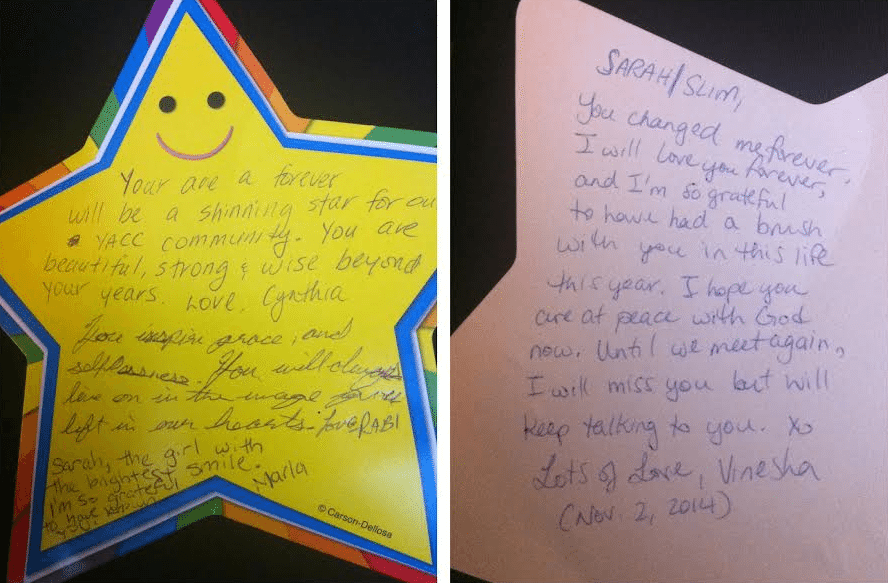 Your are a forever
will be a shinning star for ou
YACC community. You are
beautiful, strong & wise beyond
your years. Love, Cynthia
You inspire grace, and
selflessness. You will always
live on in the image
left in our hearts. Love RABI
Sarah, the girl with
the brightest smile.
I'm so grateful
to have known
you.
Marla
© Carson-Dellosa
SARAH/SLIM,
You changed me forever.
I will love you forever,
and I'm so grateful
to have had a brush
with you in this life
this year. I hope you
are at peace with God
now. Until we meet again,
I will miss you but will
keep talking to you. xo
Lots of Love, Vinesha
(Nov. 2, 2014)